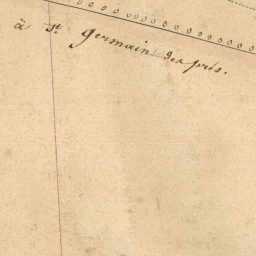 à St. germain des prés.